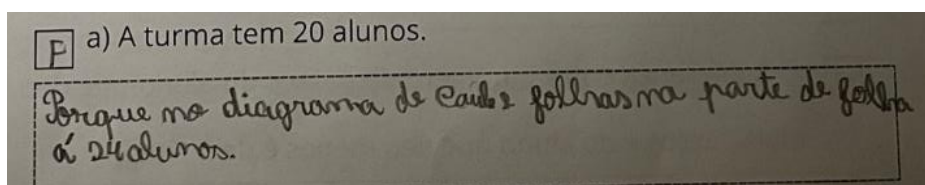 F a) A turma tem 20 alunos.
Porque no diagrama de Caule e folhas na parte de folha
á 24 alunos.